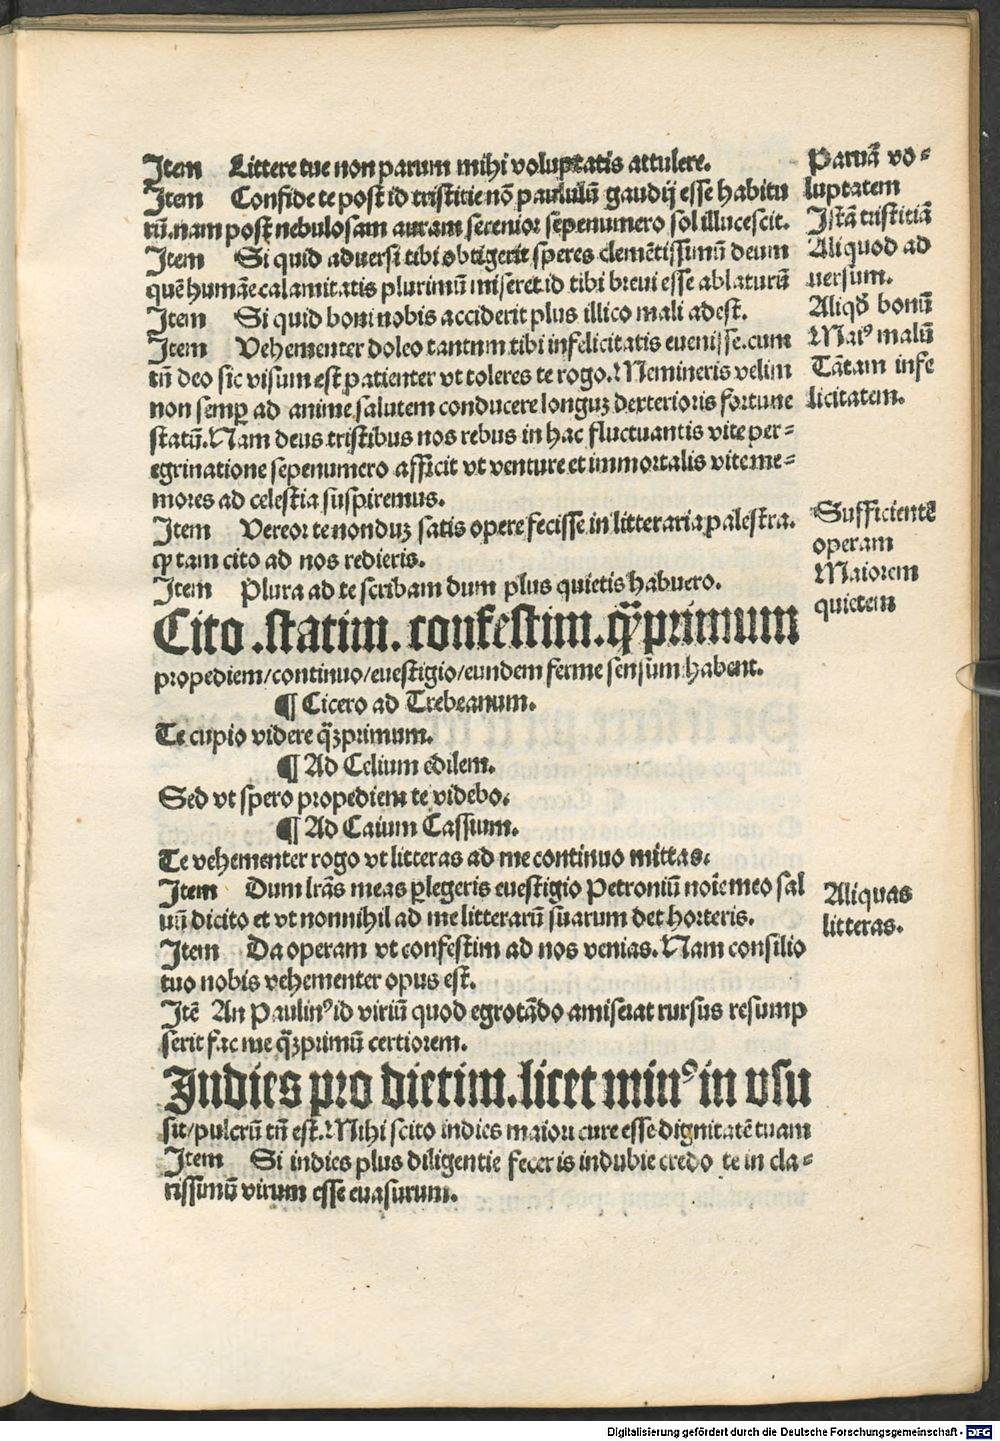 Item Littere tue non parum mihi voluptatis attulere.
Item Confide te post id tristitie nō paululū gaudij esse habitu
rū. nam post nebulosam auram serenior sepenumero sol illucescit.
Item Si quid aduersi tibi obtigerit speres clemētissimū deum
quē humāe calamitatis plurimū miseret id tibi breui esse ablaturū
Item Si quid boni nobis acciderit plus illico mali adest.
Item Vehementer doleo tantum tibi infelicitatis euenisse. cum
tñ deo sic visum est patienter vt toleres te rogo. Memineris velim
non semꝑ ad anime salutem conducere longuꝫ dexterioris fortune
statū. Nam deus tristibus nos rebus in hac fluctuantis vite per⸗
egrinatione sepenumero afficit vt venture et immortalis vite me⸗
mores ad celestia suspiremus.
Item Vereor te nonduꝫ satis opere fecisse in litteraria palestra.
ꝙ tam cito ad nos redieris.
Item Plura ad te scribam dum plus quietis habuero.
Cito .statim. confestim. q̄ꝫprimum
propediem/continuo/euestigio/eundem ferme sensum habent.
¶ Cicero ad Trebeanum.
Te cupio videre q̄ꝫprimum.
¶ Ad Celium edilem.
Sed vt spero propediem te videbo.
¶ Ad Caium Cassum.
Te vehementer rogo vt litteras ad me continuo mittas.
Item Dum lrās meas ꝑlegeris euestigio Petroniū noīe meo sal
uū dicito et vt nonnihil ad me litterarū suarum det horteris.
Item Da operam vt confestim ad nos venias. Nam consilio
tuo nobis vehementer opus est.
Itē An Paulinꝰ id viriū quod egrotādo amiserat rursus resump
serit fac me q̄ꝫprimū certiorem.
Indies pro dietim. licet minꝰ in vsu
sit/pulcrū tñ est. Mihi scito indies maiori cure esse dignitatē tuam
Item Si indies plus diligentie feceris indubie credo te in cla⸗
rissimū virum esse euasurum.
Paruā vo⸗
luptatem
Istā tristitiā
Aliquod ad
uersum.
Aliqd̄ bonū
Maiꝰ malū
Tātam infe
licitatem.
Sufficientē
operam
Maiorem
quietem
Aliquas
litteras.
Digitalisierung gefördert durch die Deutsche Forschungsgemeinschaft - DFG